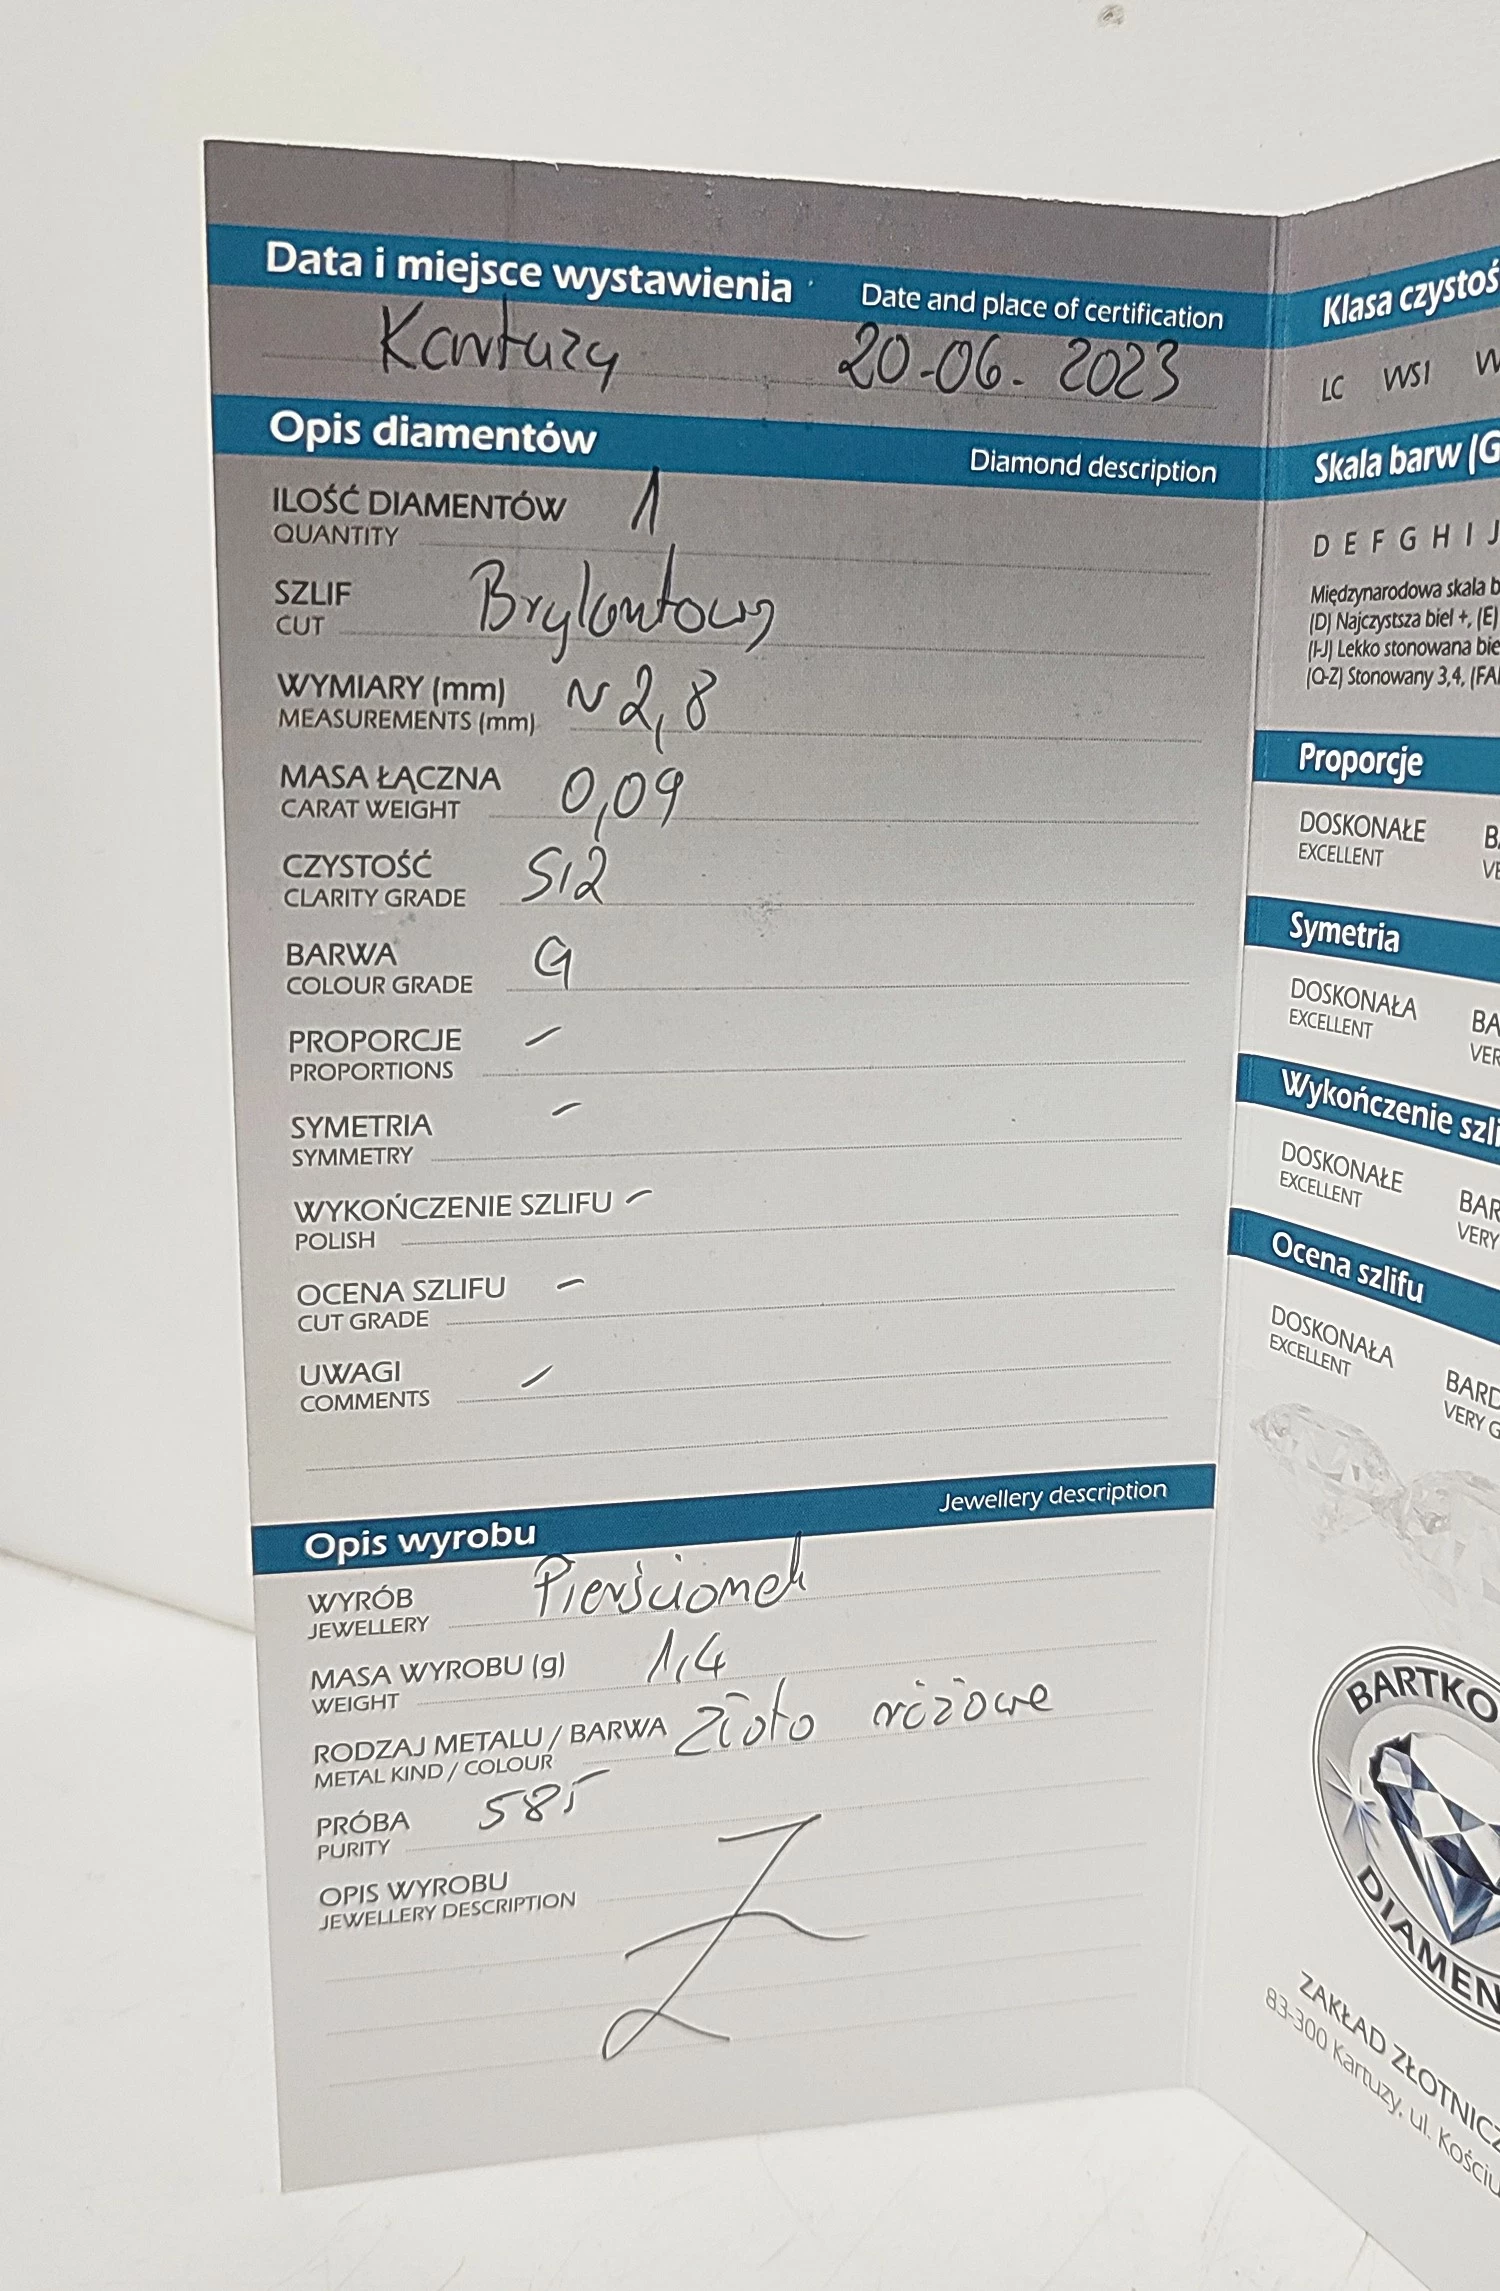 Data i miejsce wystawienia Date and place of certification
Kartuzy 20-06-2023
Opis diamentów Diamond description
ILOŚĆ DIAMENTÓW 1
QUANTITY
SZLIF Brylantowy
CUT
WYMIARY (mm) ~ 2,8
MEASUREMENTS (mm)
MASA ŁĄCZNA 0,09
CARAT WEIGHT
CZYSTOŚĆ SI2
CLARITY GRADE
BARWA G
COLOUR GRADE
PROPORCJE –
PROPORTIONS
SYMETRIA –
SYMMETRY
WYKOŃCZENIE SZLIFU –
POLISH
OCENA SZLIFU –
CUT GRADE
UWAGI –
COMMENTS
Opis wyrobu Jewellery description
WYRÓB Pierścionek
JEWELLERY
MASA WYROBU (g) 1,4
WEIGHT
RODZAJ METALU / BARWA Złoto różowe
METAL KIND / COLOUR
PRÓBA 585
PURITY
OPIS WYROBU
JEWELLERY DESCRIPTION
Klasa czystoś
LC VVS1
Skala barw (G
D E F G H I J
Międzynarodowa skala b
(D) Najczystsza biel +, (E)
(I-J) Lekko stonowana bie
(Q-Z) Stonowany 3,4, (FA
Proporcje
DOSKONAŁE
EXCELLENT
Symetria
DOSKONAŁA BA
EXCELLENT VER
Wykończenie szli
DOSKONAŁE BAR
EXCELLENT VERY
Ocena szlifu
DOSKONAŁA BARD
EXCELLENT VERY G
BARTKO
DIAMEN
ZAKŁAD ZŁOTNICZ
83-300 Kartuzy, ul. Kościu